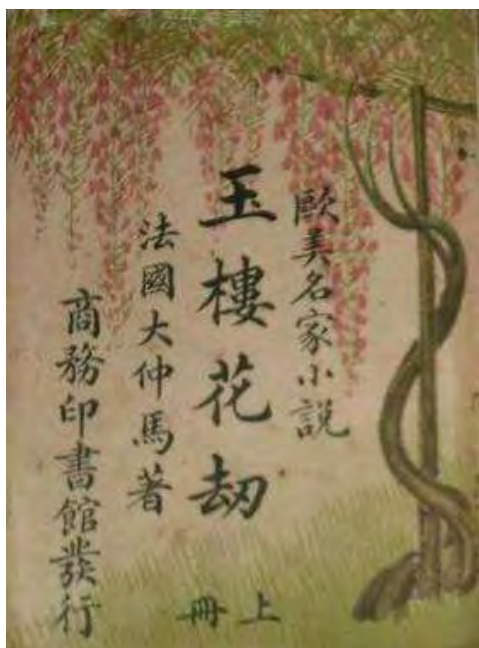 歐美名家小說
玉樓花劫
法國大仲馬著
商務印書館發行
上冊